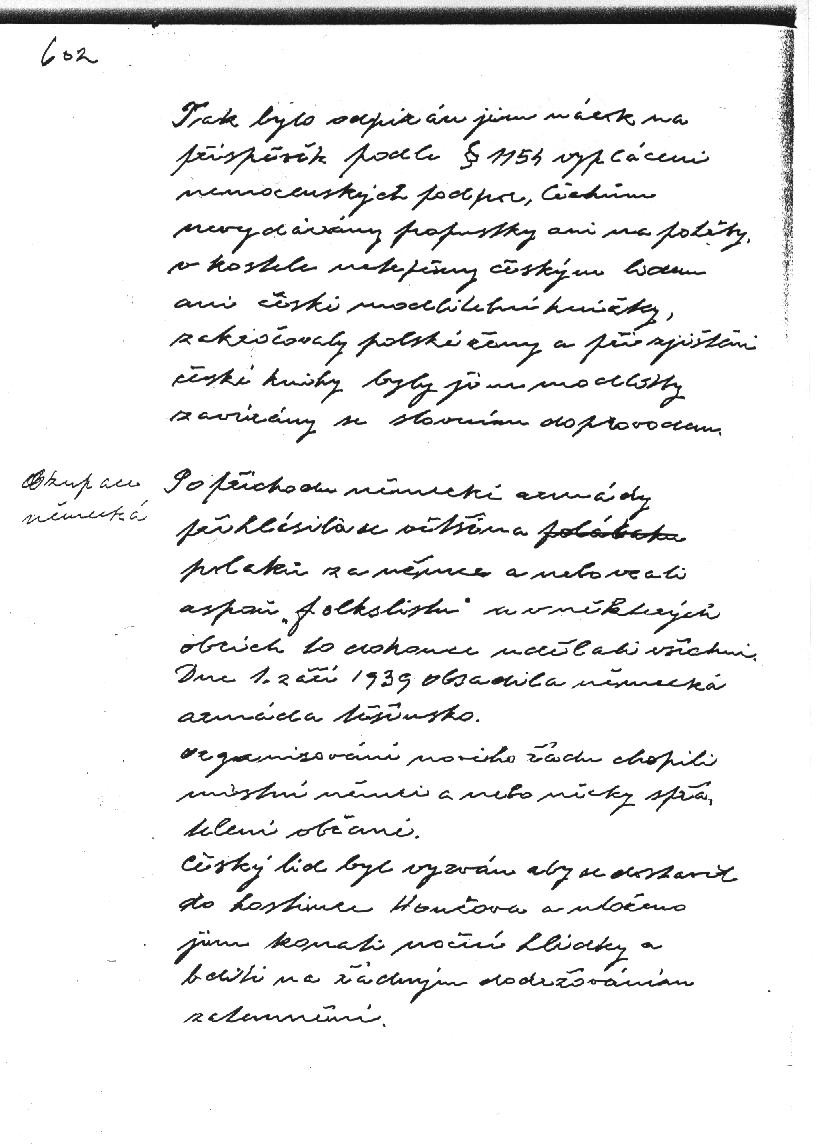 602
Tak bylo odpírán jim nárok na
příspěvěk podle § 1154 vyplácení
nemocenských podpor, Čechům
nevydávány propustky ani na pohřby,
v kostele netrpěny českým lidem
ani české modlitební knížky,
zakročovaly polské ženy a při zjištění
české knihy byly jim modlitby
zavírány se slovním doprovodem.
Okupace
německá
Po příchodu německé armády
přihlásila se většina
poláků za němce a nebo vzali
aspoň „folkslistu" a v některých
obcích to dokonce udělali všichni.
Dne 1. září 1939 obsadila německá
armáda těšínsko.
organisování nového řádu chopili
místní němci a nebo německy spřá,
telení občané.
Český lid byl vyzván aby se dostavil
do hostince Hončova a uloženo
jim konati noční hlídky a
bdíti na řádným dodržováním
zatemnění.